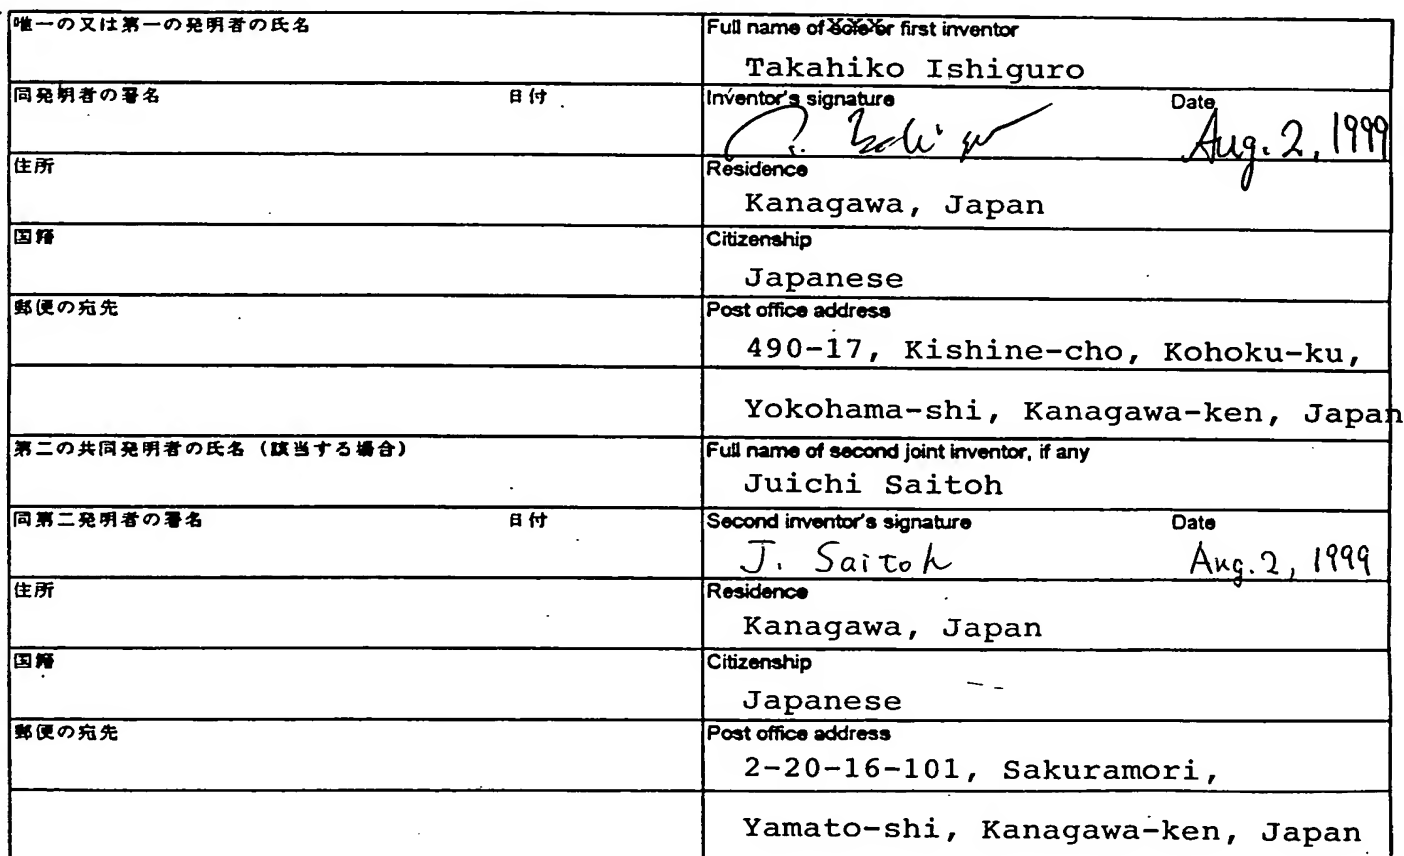 唯一の又は第一の発明者の氏名
Full name of sole or first inventor
Takahiko Ishiguro
同発明者の署名 日付
Inventor's signature Date
Aug. 2, 1999
住所
Residence
Kanagawa, Japan
国籍
Citizenship
Japanese
郵便の宛先
Post office address
490-17, Kishine-cho, Kohoku-ku,
Yokohama-shi, Kanagawa-ken, Japan
第二の共同発明者の氏名（該当する場合）
Full name of second joint inventor, if any
Juichi Saitoh
同第二発明者の署名 日付
Second inventor's signature Date
J. Saitoh Aug. 2, 1999
住所
Residence
Kanagawa, Japan
国籍
Citizenship
Japanese
郵便の宛先
Post office address
2-20-16-101, Sakuramori,
Yamato-shi, Kanagawa-ken, Japan